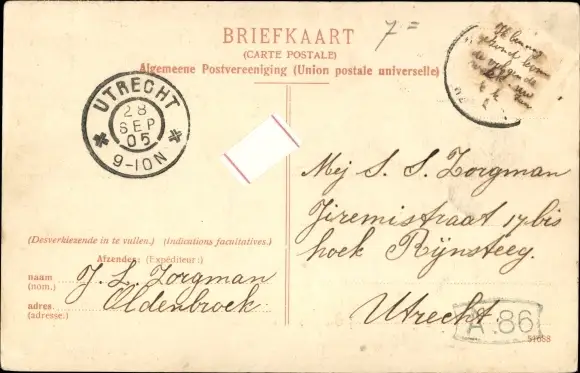 BRIEFKAART
(CARTE POSTALE)
Algemeene Postvereeniging (Union postale universelle)
7 =
UTRECHT
28
SEP
05
9-10N
Mej S. S. Zorgman
Jeremistraat 17 bis
hoek Rijnsteeg.
Utrecht.
(Desverkiezende in te vullen.) (Indications facultatives.)
Afzender: (Expéditeur:)
naam J. L. Zorgman
(nom.)
adres. Oldenbroek.
(adresse:)
A.86
51688